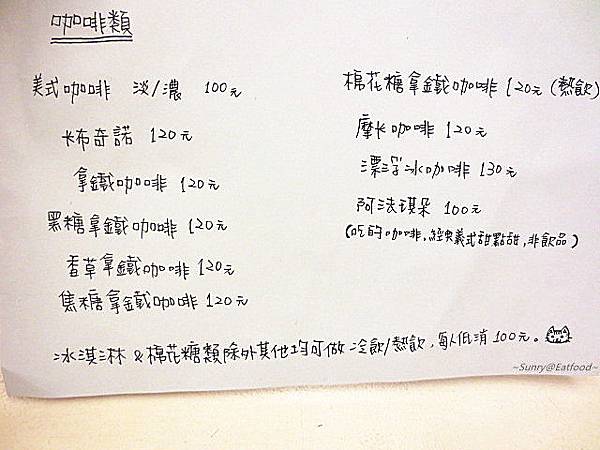 咖啡類
美式咖啡 淡/濃 100元
卡布奇諾 120元
拿鐵咖啡 120元
黑糖拿鐵咖啡 120元
香草拿鐵咖啡 120元
焦糖拿鐵咖啡 120元
棉花糖拿鐵咖啡 120元 (熱飲)
摩卡咖啡 120元
漂浮冰咖啡 130元
阿法琪朵 100元
(吃的咖啡,經典義式甜點甜,非飲品)
冰淇淋 & 棉花糖類除外其他均可做冷飲/熱飲,每人低消100元。
~Sunry@Eatfood~